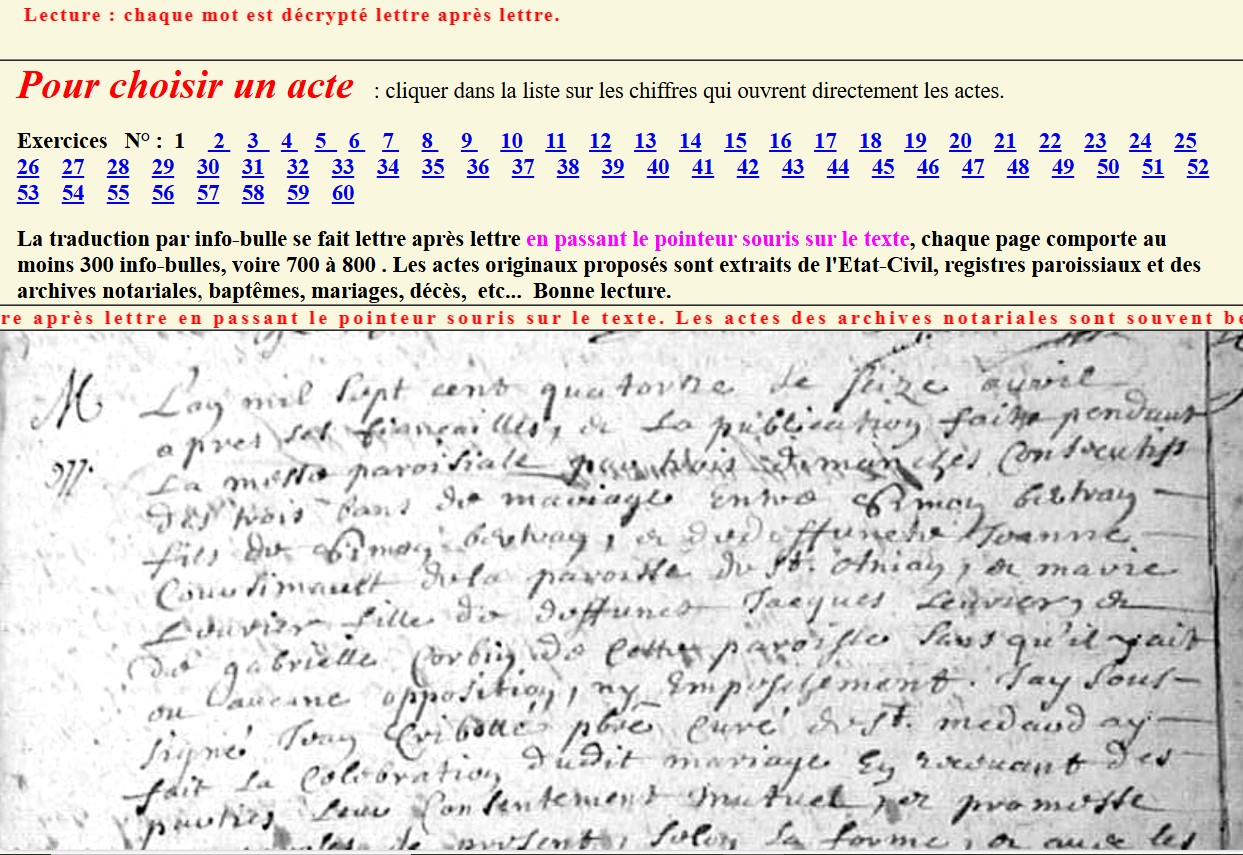 Lecture : chaque mot est décrypté lettre après lettre.
Pour choisir un acte : cliquer dans la liste sur les chiffres qui ouvrent directement les actes.
Exercices N° : 1 2 3 4 5 6 7 8 9 10 11 12 13 14 15 16 17 18 19 20 21 22 23 24 25
26 27 28 29 30 31 32 33 34 35 36 37 38 39 40 41 42 43 44 45 46 47 48 49 50 51 52
53 54 55 56 57 58 59 60
La traduction par info-bulle se fait lettre après lettre en passant le pointeur souris sur le texte, chaque page comporte au
moins 300 info-bulles, voire 700 à 800 . Les actes originaux proposés sont extraits de l'Etat-Civil, registres paroissiaux et des
archives notariales, baptêmes, mariages, décès, etc... Bonne lecture.
re après lettre en passant le pointeur souris sur le texte. Les actes des archives notariales sont souvent be
M Lay mil sept cent quatorze le seize avril
apres les fiançailles, et la publication faitte pendant
la messe paroisiale par trois dimanches consecutifs
des trois bans de mariage entre Simon
fils de Simon , et de deffuncte Joanne
de la paroisse de St. , et marie
fille de deffunct Jacques et
de gabrielle Corbin de cette paroisse sans qu'il y ait
eu aucune opposition, ny empeschement. Jay sous-
signé pbre curé de St. medard ay
fait la celebration dudit mariage en recevant des
parties leur consentement mutuel par promesse
de present, selon la forme, et avec les